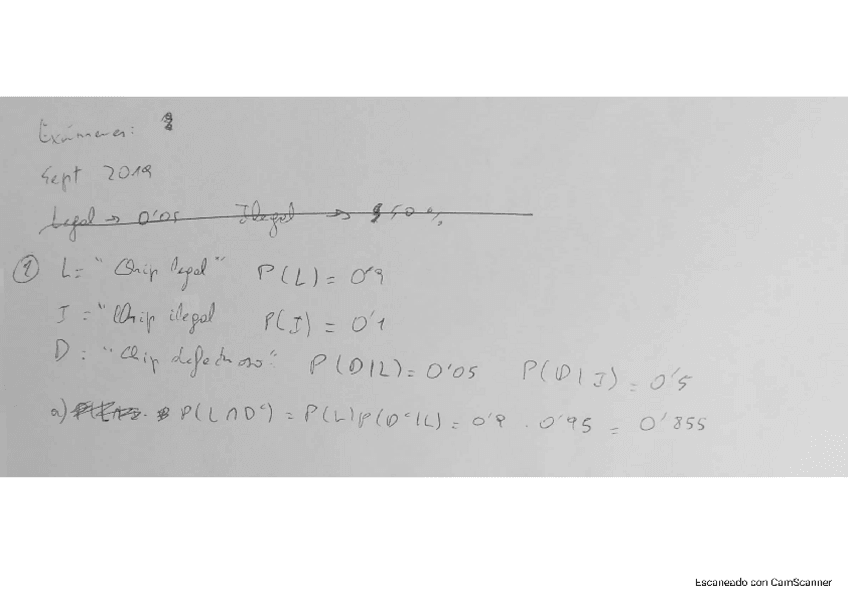 Exámenes:
Sept 2019
Legal → 0'05 Ilegal → 50%
① L = "Chip legal" P(L) = 0'9
I = "Chip ilegal P(I) = 0'1
D : "Chip defectuoso". P(D|L) = 0'05 P(D|I) = 0'5
a) P(L∩Dᶜ) = P(L)P(Dᶜ|L) = 0'9 . 0'95 = 0'855
Escaneado con CamScanner